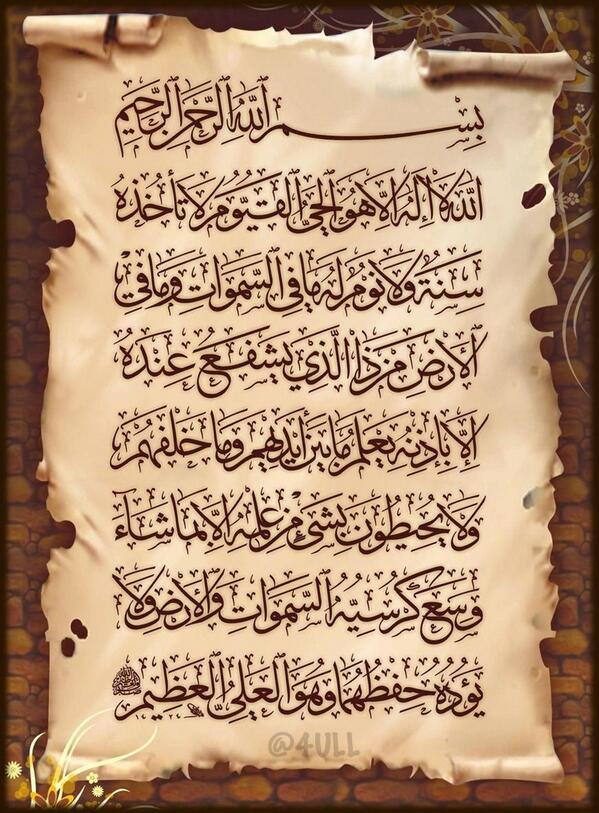 بِسْمِ ٱللَّهِ ٱلرَّحْمَٰنِ ٱلرَّحِيمِ
ٱللَّهُ لَا إِلَٰهَ إِلَّا هُوَ ٱلْحَيُّ ٱلْقَيُّومُ لَا تَأْخُذُهُ
سِنَةٌ وَلَا نَوْمٌ لَهُ مَا فِي ٱلسَّمَٰوَاتِ وَمَا فِي
ٱلْأَرْضِ مَنْ ذَا ٱلَّذِي يَشْفَعُ عِنْدَهُ
إِلَّا بِإِذْنِهِ يَعْلَمُ مَا بَيْنَ أَيْدِيهِمْ وَمَا خَلْفَهُمْ
وَلَا يُحِيطُونَ بِشَيْءٍ مِنْ عِلْمِهِ إِلَّا بِمَا شَاءَ
وَسِعَ كُرْسِيُّهُ ٱلسَّمَٰوَاتِ وَٱلْأَرْضَ وَلَا
يَؤُدُهُ حِفْظُهُمَا وَهُوَ ٱلْعَلِيُّ ٱلْعَظِيمُ
@4ULL